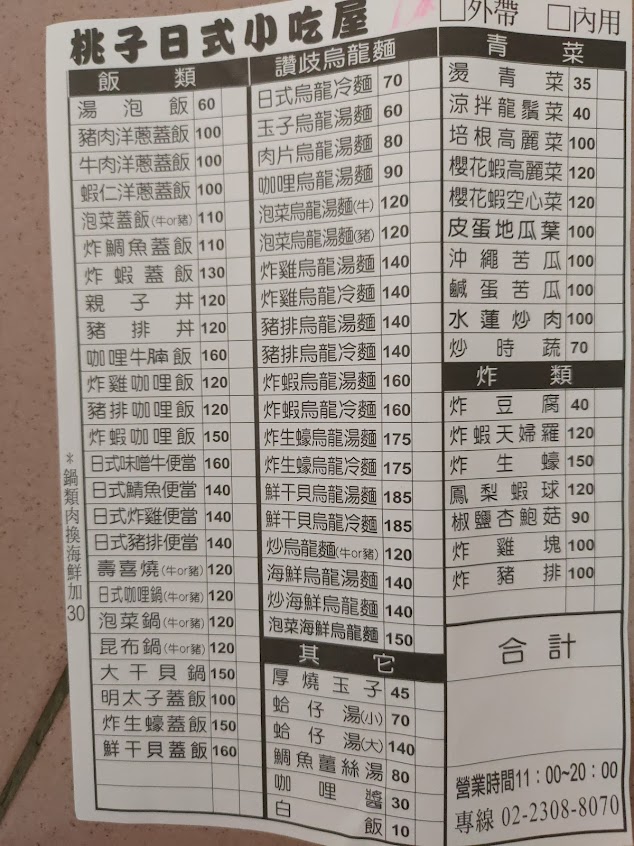 桃子日式小吃屋
□外帶 □內用
飯類
湯泡飯 60
豬肉洋蔥蓋飯 100
牛肉洋蔥蓋飯 100
蝦仁洋蔥蓋飯 100
泡菜蓋飯(牛or豬) 110
炸鯛魚蓋飯 110
炸蝦蓋飯 130
親子丼 120
豬排丼 120
咖哩牛腩飯 160
炸雞咖哩飯 120
豬排咖哩飯 120
炸蝦咖哩飯 150
日式味噌牛便當 160
日式鯖魚便當 140
日式炸雞便當 140
日式豬排便當 140
壽喜燒(牛or豬) 120
日式咖哩鍋(牛or豬) 120
泡菜鍋(牛or豬) 120
昆布鍋(牛or豬) 120
大干貝鍋 150
明太子蓋飯 100
炸生蠔蓋飯 150
鮮干貝蓋飯 160
*鍋類肉換海鮮加30
讚歧烏龍麵
日式烏龍冷麵 70
玉子烏龍湯麵 60
肉片烏龍湯麵 80
咖哩烏龍湯麵 90
泡菜烏龍湯麵(牛) 120
泡菜烏龍湯麵(豬) 120
炸雞烏龍湯麵 140
炸雞烏龍冷麵 140
豬排烏龍湯麵 140
豬排烏龍冷麵 140
炸蝦烏龍湯麵 160
炸蝦烏龍冷麵 160
炸生蠔烏龍湯麵 175
炸生蠔烏龍冷麵 175
鮮干貝烏龍湯麵 185
鮮干貝烏龍冷麵 185
炒烏龍麵(牛or豬) 120
海鮮烏龍湯麵 140
炒海鮮烏龍麵 140
泡菜海鮮烏龍麵 150
其它
厚燒玉子 45
蛤仔湯(小) 70
蛤仔湯(大) 140
鯛魚薑絲湯 80
咖哩醬 30
白飯 10
青菜
燙青菜 35
涼拌龍鬚菜 40
培根高麗菜 100
櫻花蝦高麗菜 120
櫻花蝦空心菜 120
皮蛋地瓜葉 100
沖繩苦瓜 100
鹹蛋苦瓜 100
水蓮炒肉 100
炒時蔬 70
炸類
炸豆腐 40
炸蝦天婦羅 120
炸生蠔 150
鳳梨蝦球 120
椒鹽杏鮑菇 90
炸雞塊 100
炸豬排 100
合計
營業時間11：00~20：00
專線 02-2308-8070